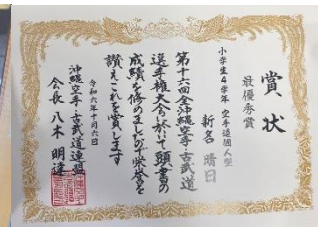 賞状
最優秀賞
小学生4学年 空手道個人型
新名 晴日
第十六回全沖縄空手・古武道
選手権大会に於いて頭書の
成績を修めましたので栄誉を
讃えこれを賞します
令和六年十月六日
沖縄空手・古武道連盟
会長 八木 明達